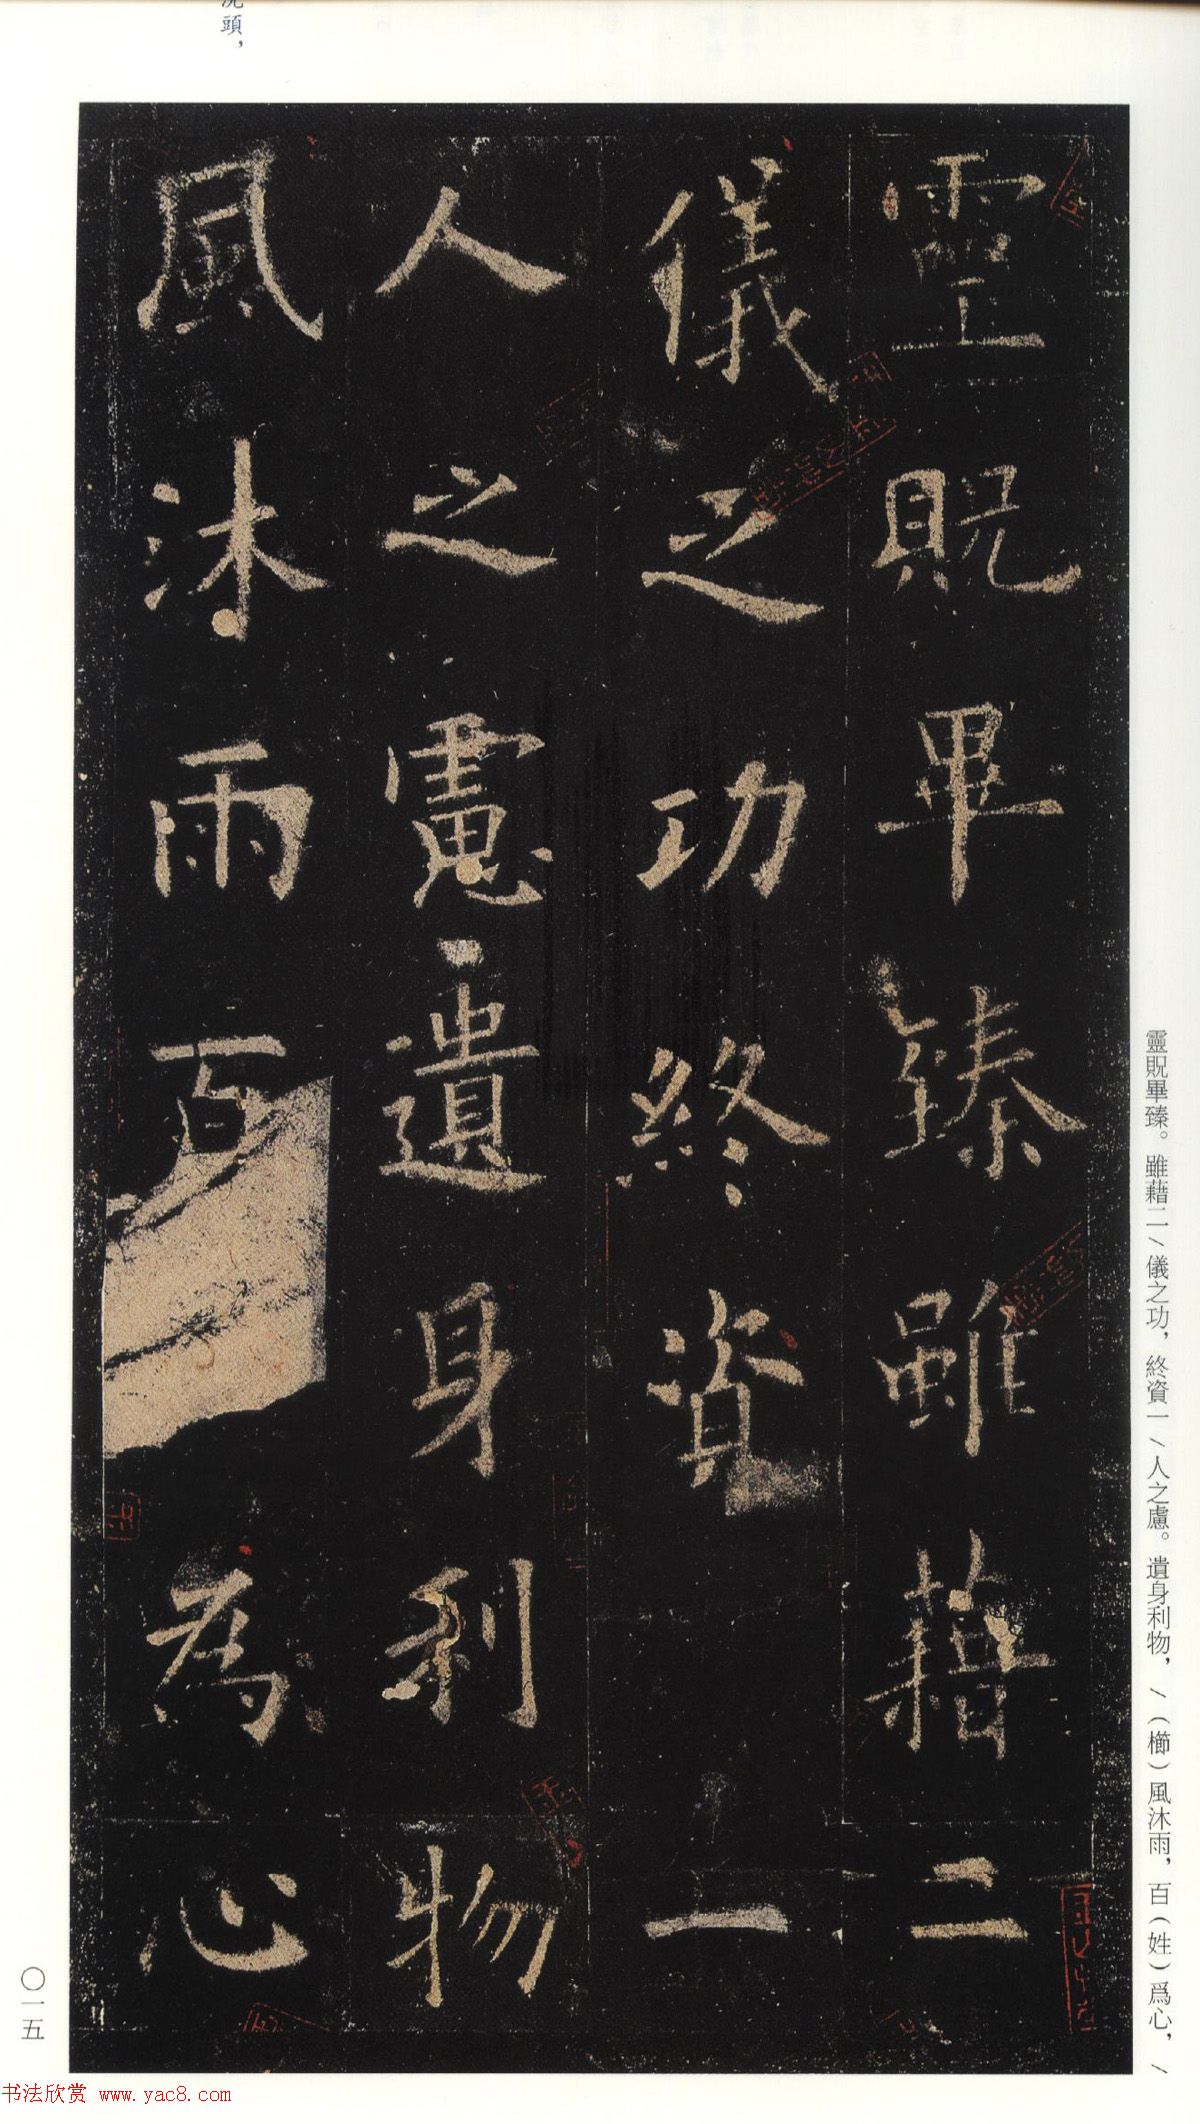 靈貺畢臻雖藉二
儀之功終資一
人之慮遺身利物
風沐雨百為心
靈貺畢臻。雖藉二/儀之功，終資一/人之慮。遺身利物，/（櫛）風沐雨，百（姓）爲心，/
頭，
〇一五
书法欣赏 www.yac8.com